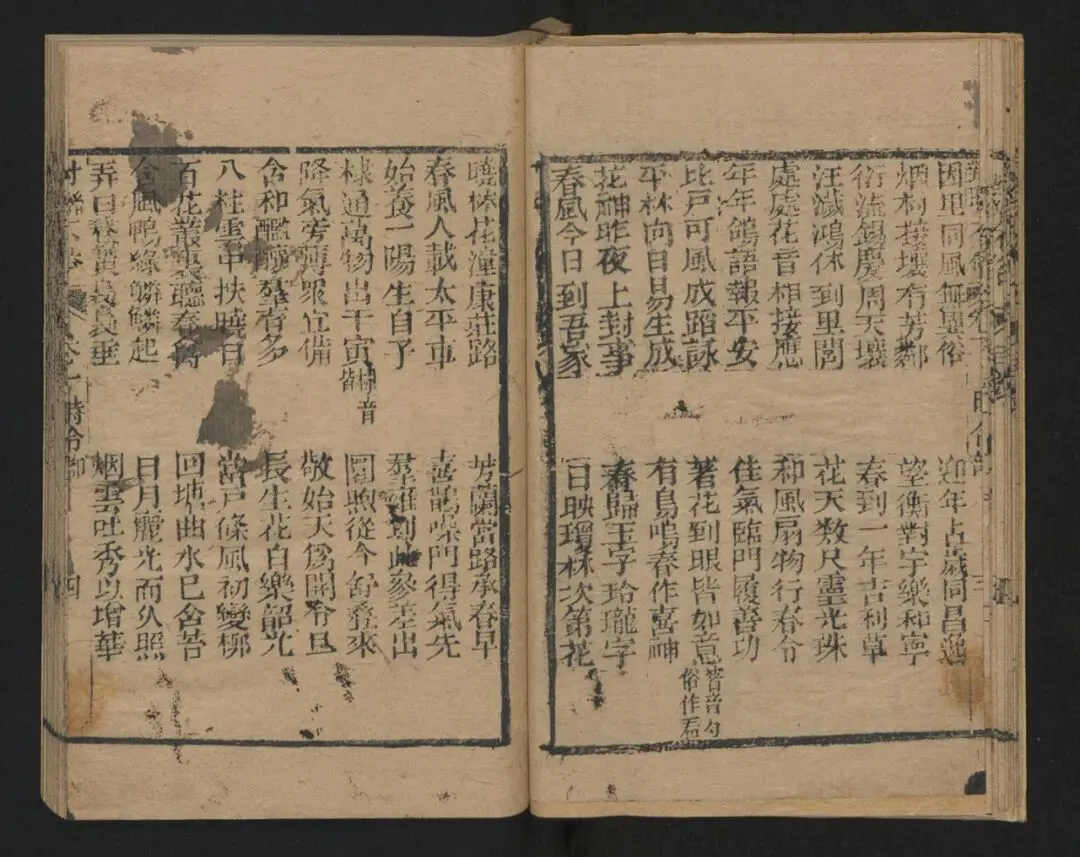 因里同風無異俗 迎年占歲同昌逸
烟村接壤有芳鄰 望衡對宇樂和寧
衍流錫慶周天壤 春到一年吉利草
汪濊鴻休到里閭 花天数尺靈光珠
處處花音相接應 和風扇物行春令
年年鶴語報平安 佳氣臨門履善功
比戶可風成蹈詠 著花到眼皆如意
平林向日易生成 有鳥鳴春作喜神
花神昨夜上封事 春歸玉字玲瓏字
春風今日到吾家 日映瓊林次第花
曉林花潼康莊路 芳蘭當路承春早
春風人載太平車 喜鵲噪門得氣先
始養一陽生自子 羣雛到此參差出
棣通萬物出于寅 煦從今舒叠來
降氣旁薄眾宜備 敬始天爲開令旦
含和醞釀羣有多 長生花自樂韶光
八柱雲中扶曉日 當戸條風初變柳
百花叢裏聽春禽 回地曲水巳含苔
含風鴨綠鱗鱗起 日月麗光而久照
弄日鵝黃裊裊垂 烟雲吐秀以增華
時令部 四